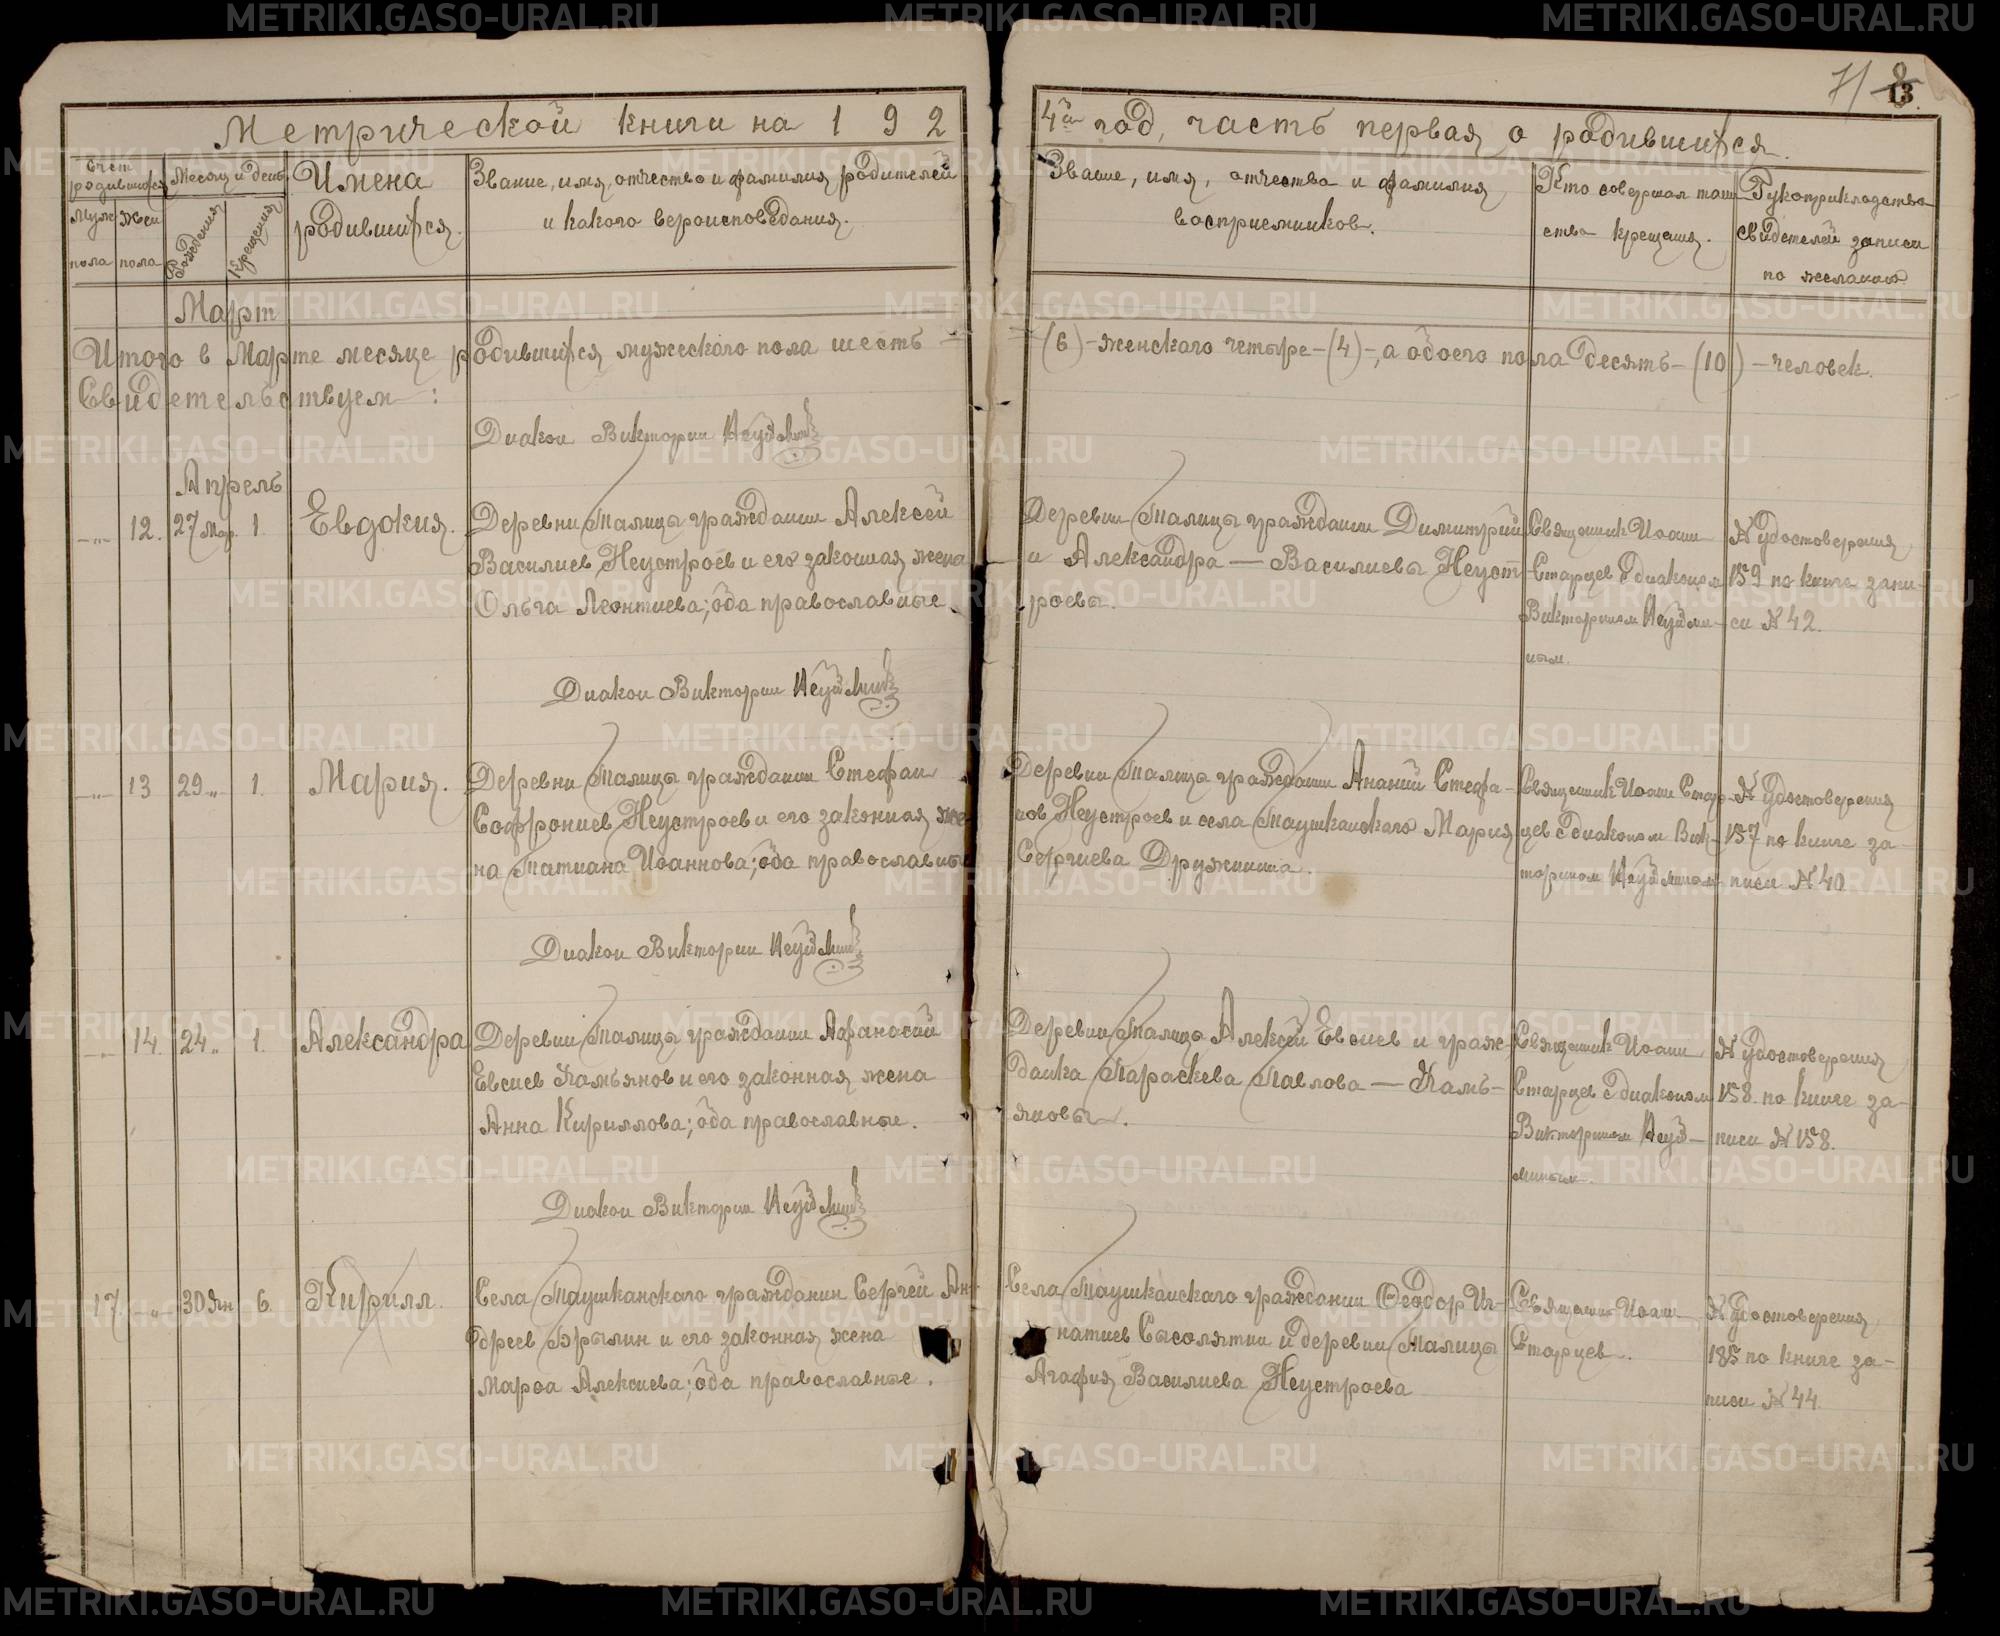 71 8
13.
Метрической книги на 192
4й год, часть первая о родившихся.
Счет родившихся
Муж. пола
Жен. пола
Месяц и день
Рождения
Крещения
Имена родившихся.
Звание, имя, отчество и фамилия родителей
и какого вероисповедания.
Звание, имя, отчество и фамилия
восприемников.
Кто совершал таин-
ство крещения.
Рукоприкладство
свидетелей записи
по желанию
Март
Итого в Марте месяце родившихся мужеского пола шесть –
– (6) – женского четыре – (4) –, а обоего пола десять – (10) – человек.
Свидетельствуем:
Диакон Викторин Неудмин
Апрель
–„– 12. 27 мар. 1. Евдокия.
Деревни Талицы гражданин Алексей
Василиев Неустроев и его законная жена
Ольга Леонтиева; оба православные.
Деревни Талицы граждани Димитрий
и Александра — Василиевы Неуст-
роевы.
Священник Иоанн
Старцев с диаконом
Викторином Неудми-
ным.
№ удостоверения
159 по книге запи-
си № 42.
Диакон Викторин Неудмин
–„– 13 29 „ 1. Мария.
Деревни Талицы гражданин Стефан
Софрониев Неустроев и его законная же-
на Татиана Иоаннова; оба православные
Деревни Талицы гражданин Ананий Стефа-
нов Неустроев и села Таушканского Мария
Сергиева Дружинина.
Священник Иоанн Стар-
цев с диаконом Вик-
торином Неудмином
№ удостоверения
157 по книге за-
писи № 40
Диакон Викторин Неудмин
–„– 14. 24 „ 1. Александра
Деревни Талицы гражданин Афанасий
Евсиев Камьянов и его законная жена
Анна Кириллова; оба православные.
Деревни Талицы Алексей Евсиев и граж-
данка Параскева Павлова — Камь-
яновы.
Священник Иоанн
Старцев с диаконом
Викторином Неуд-
миным.
№ удостоверения
158 по книге за-
писи № 158.
Диакон Викторин Неудмин
17. –„– 30 Ян 6. Кирилл.
Села Таушканского гражданин Сергей Ан-
дреев Брылин и его законная жена
Марфа Алексиева; оба православные.
Села Таушканского гражданин Феодор Иг-
натиев Сысолятин и деревни Талицы
Агафия Василиева Неустроева
Священник Иоанн
Старцев.
№ удостоверения
185 по книге за-
писи № 44.
METRIKI.GASO-URAL.RU